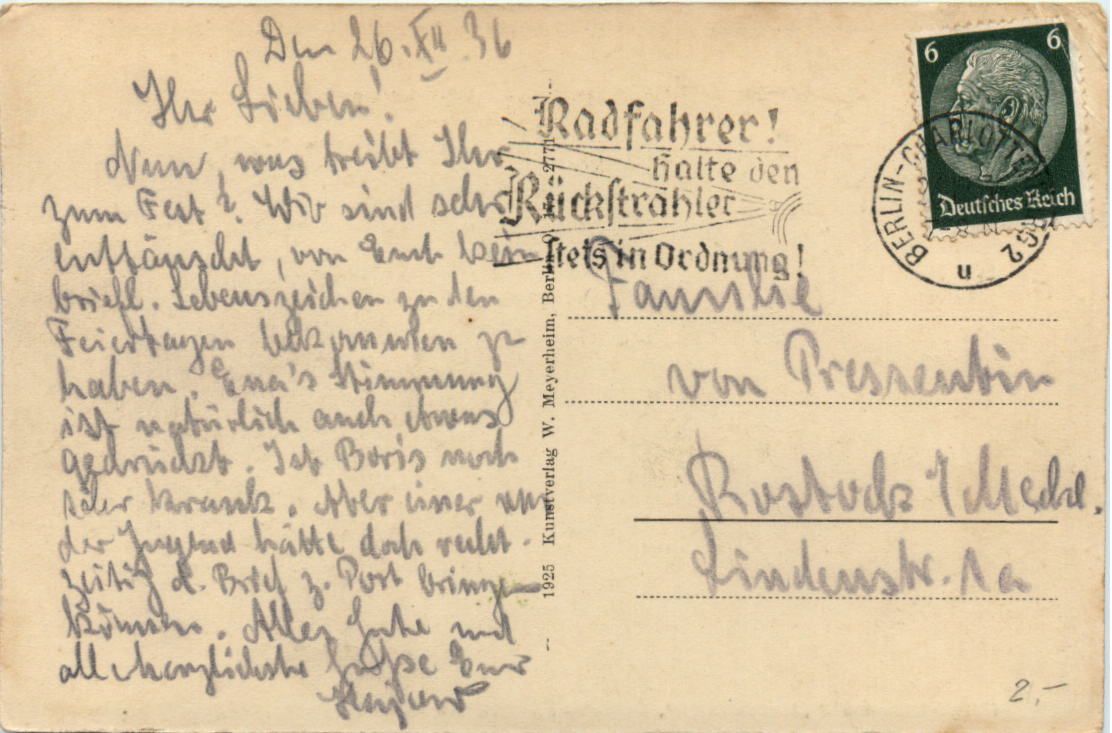 Den 26. XII 36
Ihr Lieben!
Nun, was treibt Ihr
zum Fest? Wir sind sehr
enttäuscht, von Euch kein
briefl. Lebenszeichen zu den
Feiertagen bekommen zu
haben. Stimmung
ist natürlich auch etwas
gedrückt. Ist Boris noch
sehr krank. Aber einer von
der Jugend hätte doch recht-
zeitig d. Brief z. Post bringen
können. Alles Gute und
allerherzlichste Grüße Euer
1925 Kunstverlag W. Meyerheim, Berlin O. 2771
Radfahrer!
halte den
Rückstrahler
stets in Ordnung!
6 6
Deutsches Reich
BERLIN-CHARLOTTENBURG 2
u
Familie
von Pressentin
Rostock i/Meckl.
Lindenstr. 1a
2,-